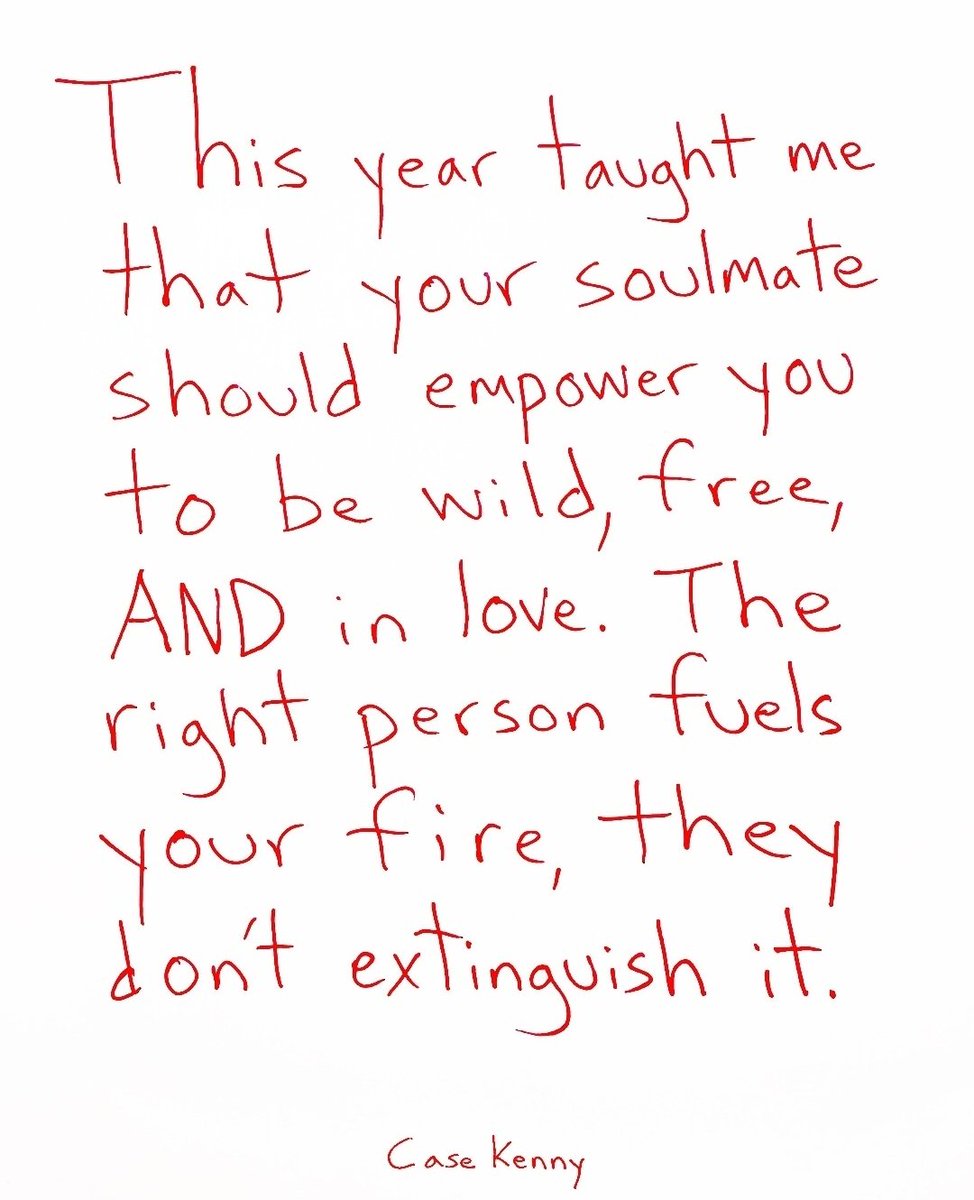 This year taught me
that your soulmate
should empower you
to be wild, free,
AND in love. The
right person fuels
your fire, they
don't extinguish it.
Case Kenny